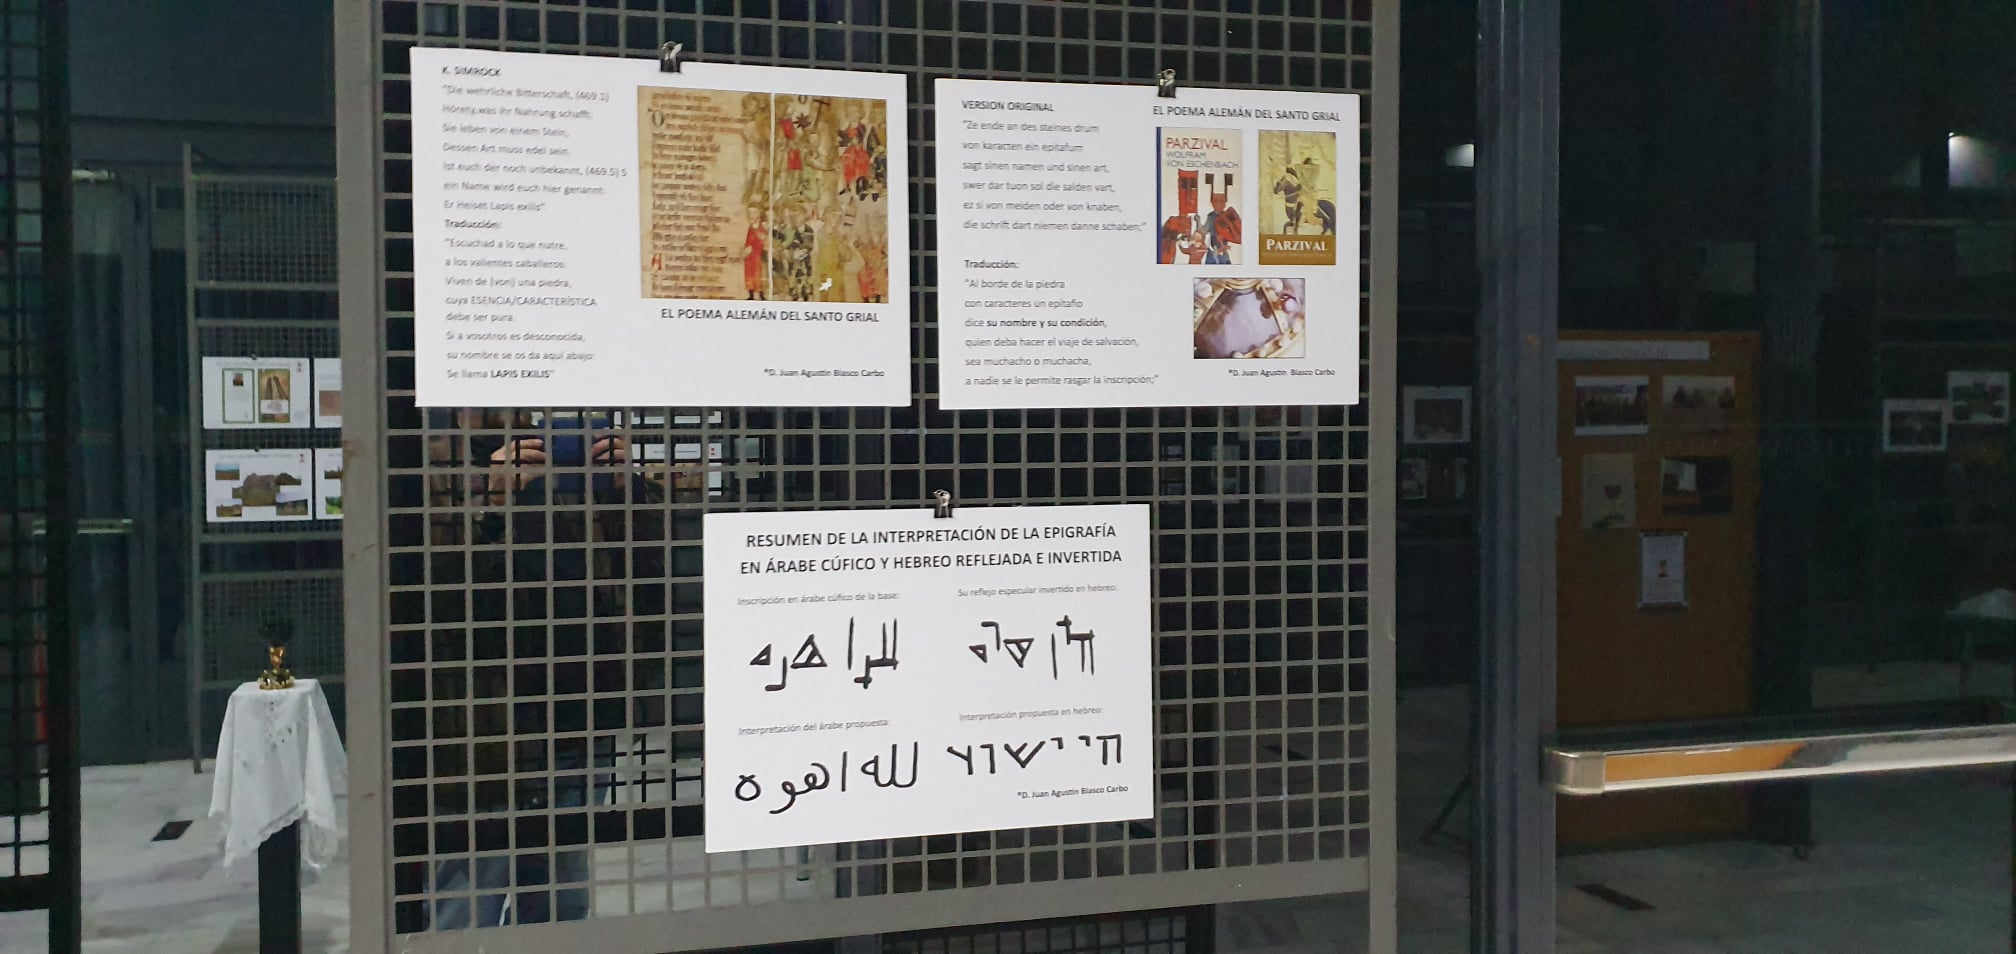 K. SIMROCK
"Die wehrliche Ritterschaft, (469.1)
Höret, was ihr Nahrung schafft:
Sie leben von einem Stein,
Dessen Art muss edel sein.
Ist euch der noch unbekannt, (469.5) S
ein Name wird euch hier genannt:
Er Heiset Lapis exilis".
Traducción:
"Escuchad a lo que nutre,
a los valientes caballeros:
Viven de (von) una piedra,
cuya ESENCIA/CARACTERÍSTICA
debe ser pura.
Si a vosotros es desconocida,
su nombre se os da aquí abajo:
Se llama LAPIS EXILIS"
EL POEMA ALEMÁN DEL SANTO GRIAL
*D. Juan Agustín Blasco Carbo
VERSION ORIGINAL
"Ze ende an des steines drum
von karacten ein epitafum
sagt sinen namen und sinen art,
swer dar tuon sol die salden vart,
ez si von meiden oder von knaben,
die schrift dart niemen danne schaben;"
Traducción:
"Al borde de la piedra
con caracteres un epitafio
dice su nombre y su condición,
quien deba hacer el viaje de salvación,
sea muchacho o muchacha,
a nadie se le permite rasgar la inscripción;"
EL POEMA ALEMÁN DEL SANTO GRIAL
PARZIVAL
WOLFRAM
VON ESCHENBACH
PARZIVAL
*D. Juan Agustín Blasco Carbo
RESUMEN DE LA INTERPRETACIÓN DE LA EPIGRAFÍA
EN ÁRABE CÚFICO Y HEBREO REFLEJADA E INVERTIDA
Inscripción en árabe cúfico de la base:
Su reflejo especular invertido en hebreo:
Interpretación del árabe propuesta:
لله اهوة
Interpretación propuesta en hebreo:
*D. Juan Agustín Blasco Carbo